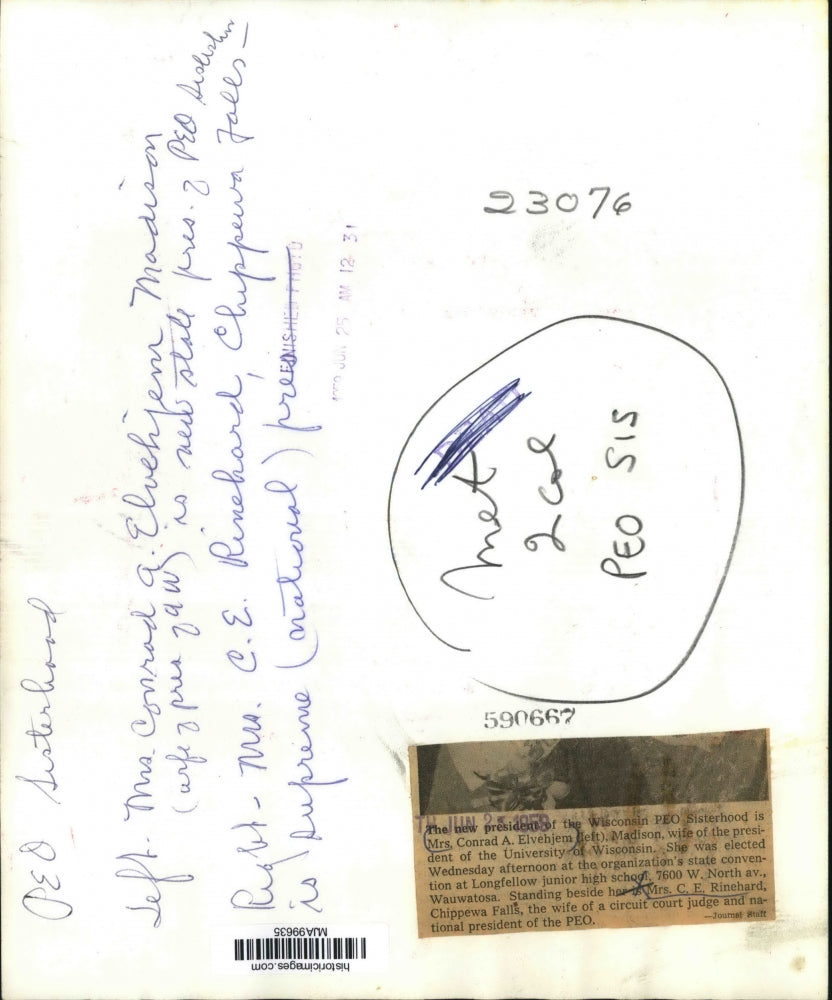 PEO Sisterhood
Left - Mrs. Conrad A. Elvehjem Madison
(wife of pres of UW) is new state pres. of PEO Sisterhood
Right - Mrs. C. E. Rinehard, Chippewa Falls -
is Supreme (national) pres
FINISHED PHOTO
JUN 25 AM 12 31
23076
Met
2 col
PEO SIS
590667
TH JUN 25 1959
The new president of the Wisconsin PEO Sisterhood is
Mrs. Conrad A. Elvehjem (left), Madison, wife of the presi-
dent of the University of Wisconsin. She was elected
Wednesday afternoon at the organization's state conven-
tion at Longfellow junior high school, 7600 W. North av.,
Wauwatosa. Standing beside her is Mrs. C. E. Rinehard,
Chippewa Falls, the wife of a circuit court judge and na-
tional president of the PEO.
—Journal Staff
historicimages.com
MJA99635